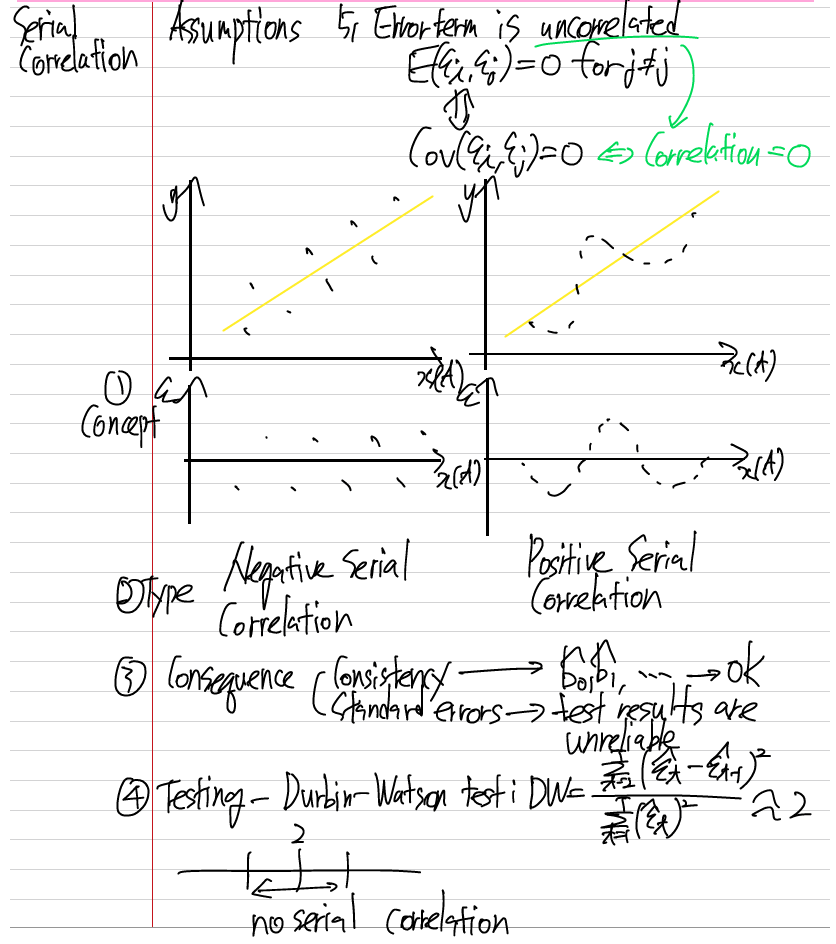 Serial Correlation
Assumptions 5, Error term is uncorrelated
E(ε_i, ε_j)=0 for j≠j
⇕
Cov(ε_i, ε_j)=0 ⇔ Correlation=0
y
y
x(A)
x(A)
① Concept
ε
ε
x(A)
x(A)
② Type
Negative Serial Correlation
Positive Serial Correlation
③ Consequence
Consistency → b̂0, b̂1, ... → OK
Standard errors → test results are unreliable
④ Testing - Durbin-Watson test: DW = Σ_{t=2}^{T} (ε̂_t - ε̂_{t-1})² / Σ_{t=1}^{T} (ε̂_t)² ≈ 2
2
no serial correlation